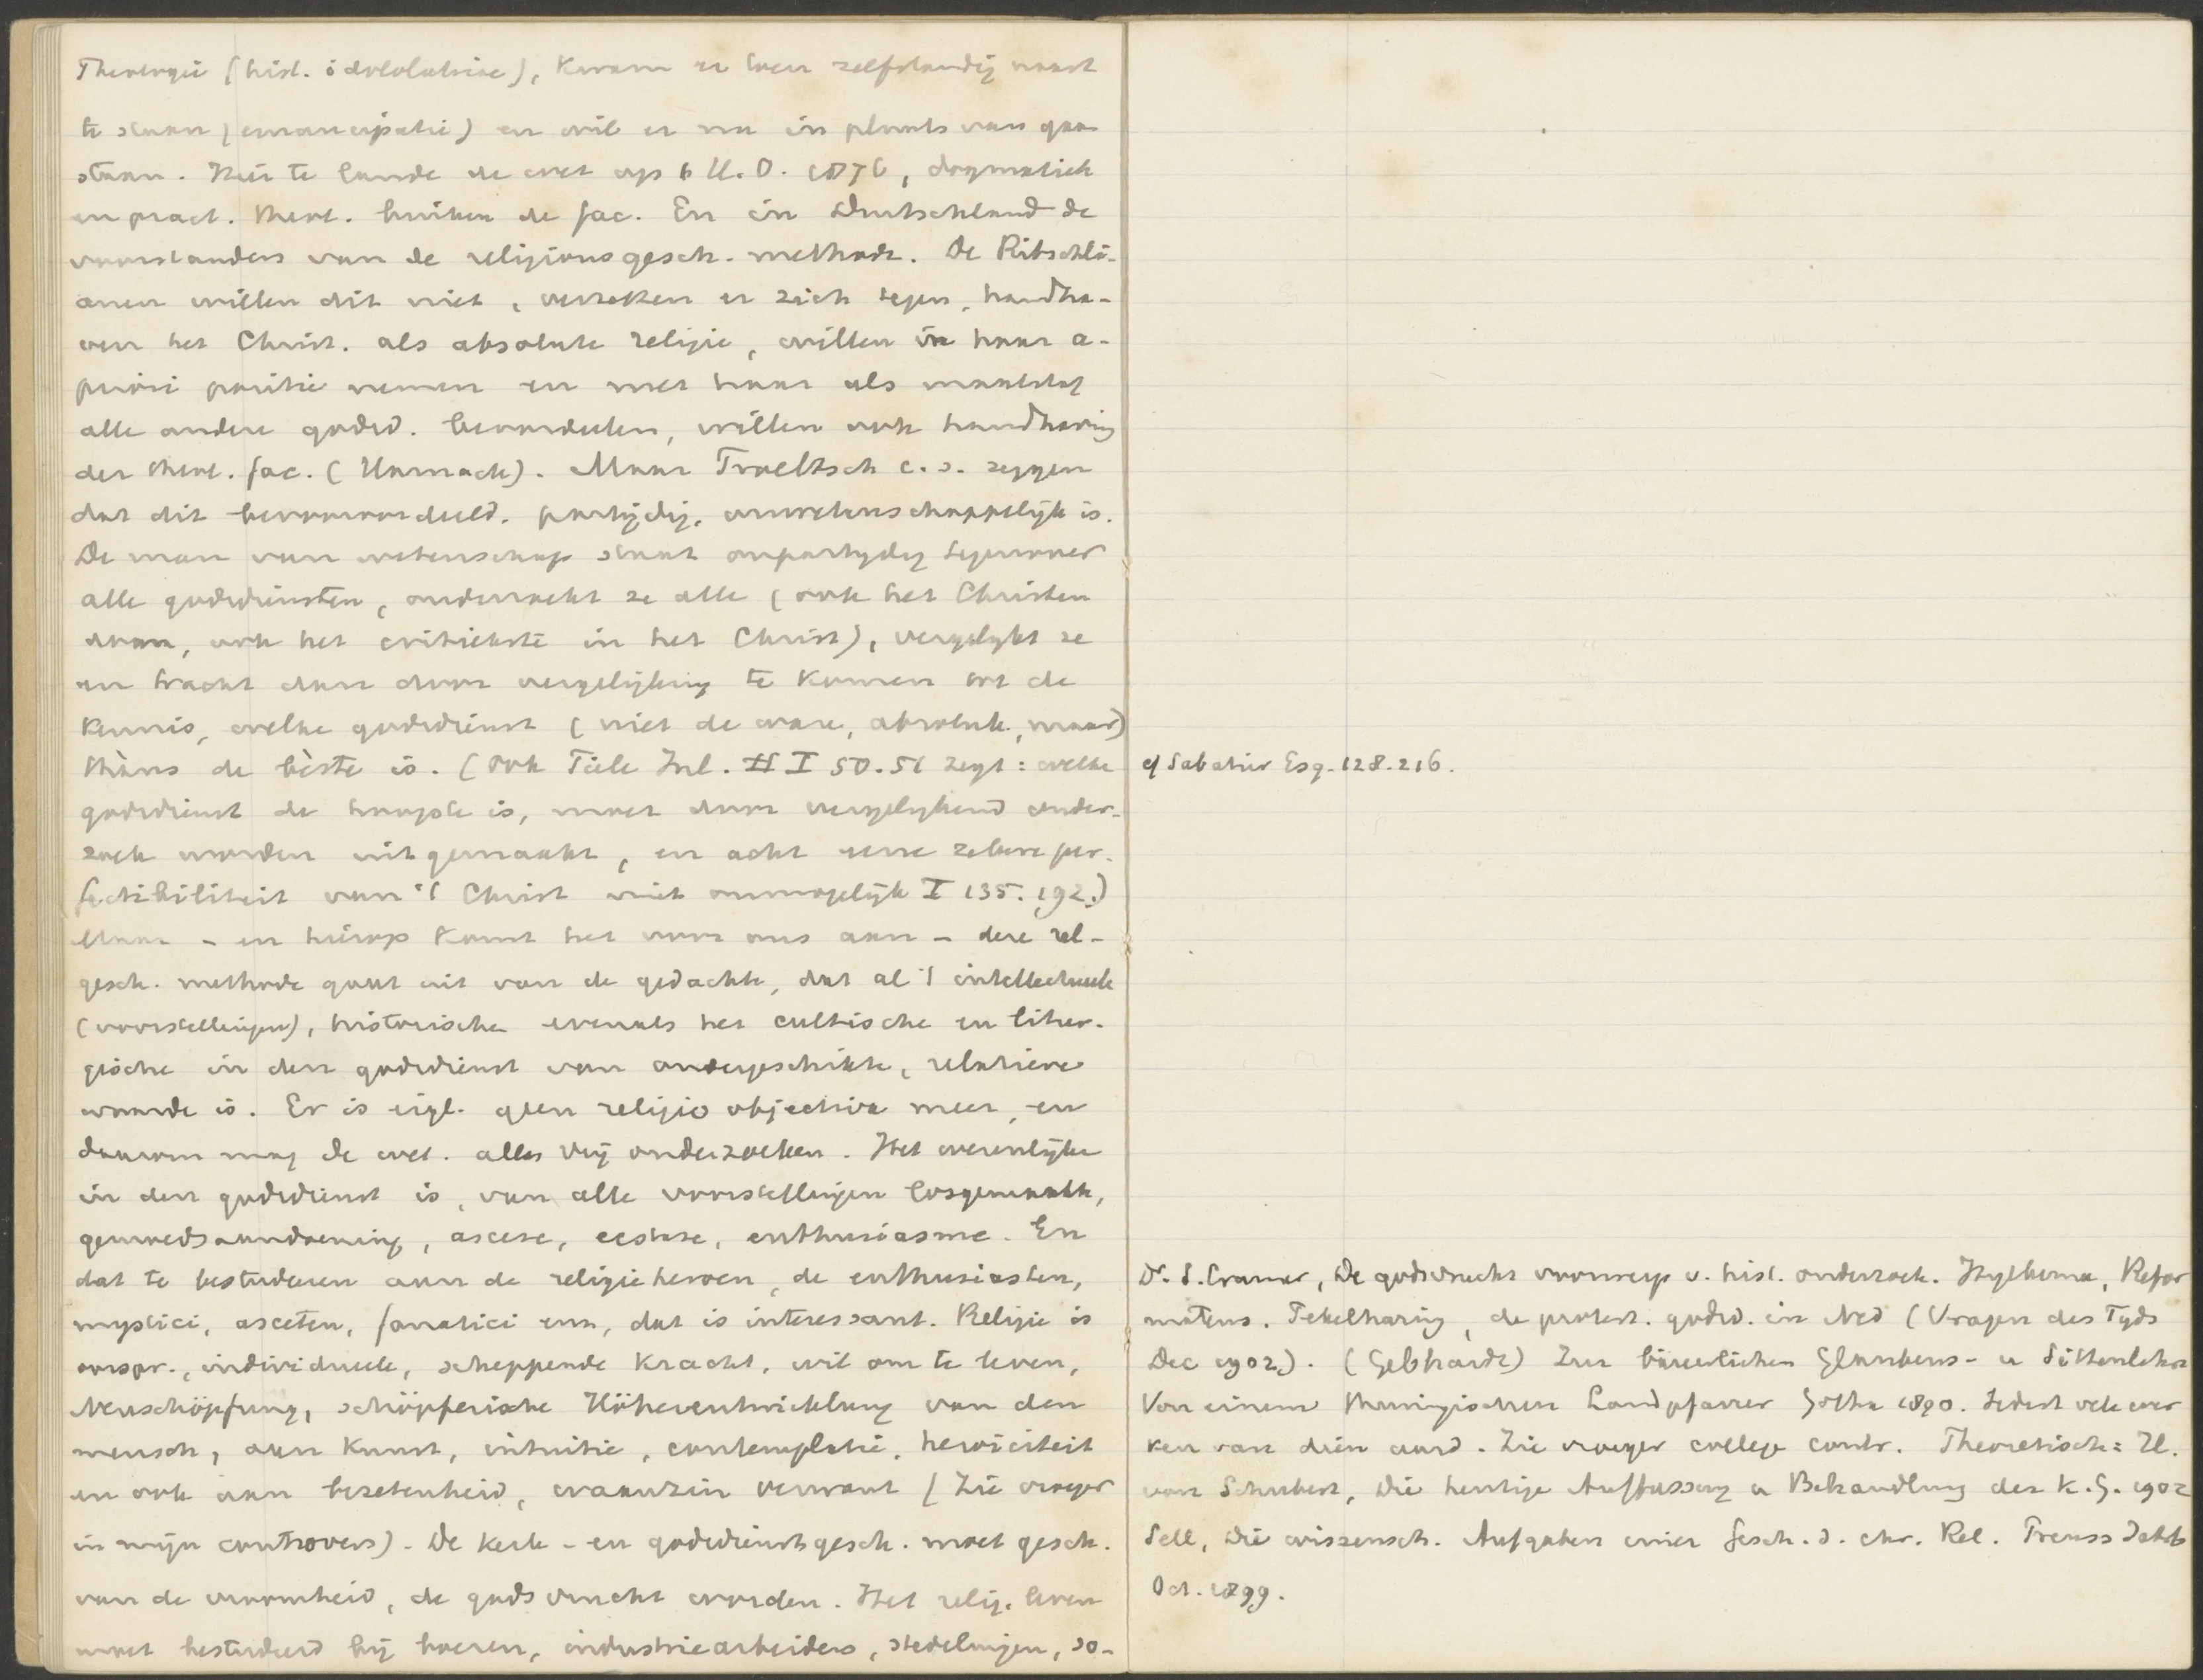 Theologie (hist. idololatriae), kwam er toen zelfstandig naast
te staan (emancipatie) en wil er nu in plaats van gaan
staan. Hier te lande de wet op h U.O. 1876, dogmatiek
en pract. theol. buiten de fac. En in Duitschland de
voorstanders van de religionsgesch. methode. De Ritschli-
anen willen dit niet, verzetten er zich tegen, handha-
ven het Christ. als absolute religie, willen in haar a-
priori positie nemen en met haar als maatstaf
alle andere godsd. beoordeelen, willen ook handhaving
der theol. fac. (Harnack). Maar Troeltsch c.s. zeggen
dat dit bevooroordeeld, partijdig, onwetenschappelijk is.
De man van wetenschap staat onpartydig tegenover
alle godsdiensten, onderzoekt ze alle (ook het Christen
dom, ook het critiekste in het Christ), vergelykt ze
en tracht dan door vergelijking te komen tot de
kennis, welke godsdienst (niet de ware, absolute, maar)
thàns de bèste is. (Ook Tiele Inl. I 50.51 zegt: welke
godsdienst de hoogste is, moet door vergelykend onder-
zoek worden uitgemaakt, en acht eene zekere per-
fectibiliteit van 't Christ niet onmogelijk I 135. 192.)
Maar - en hierop komt het voor ons aan - deze rel-
gesch. methode gaat uit van de gedachte, dat al 't intellectueele
(voorstellingen), historische evenals het cultische en litur-
gische in den godsdienst van ondergeschikte, relatieve
waarde is. Er is eigl. geen religio objectiva meer, en
daarom mag de wet. alles vrij onderzoeken. Het wezenlijke
in den godsdienst is, van alle voorstellingen losgemaakt,
gemoedsaandoening, ascese, ecstase, enthusiasme. En
dat te bestudeeren aan de religieheroen, de enthusiasten,
mystici, asceten, fanatici enz, dat is interessant. Religie is
oorspr., individueele, scheppende kracht, wil om te leven,
Neuschöpfung, schöpferische Höherentwicklung van den
mensch, aan kunst, intuitie, contemplatie, heroiciteit
en ook aan bezetenheid, waanzin verwant (Zie vroeger
in mijn controvers) - De kerk - en godsdienstgesch. moet gesch.
van de vroomheid, de godsvrucht worden. Het relig. leven
moet bestudeerd bij boeren, industriearbeiders, stedelingen, so-
cf Sabatier Esq. 128. 216.
Dr. S. Cramer, De godsvrucht voorwerp v. hist. onderzoek. Hylkema, Refor
mateurs. Tekelharing, de protest. godsd. in Ned (Vragen des Tyds
Dec 1902). (Gebhardt) Zur bäuerlichen Glaubens- u Sittenlehre
Von einem thuringischen Landpfarrer Gotha 1890. Sedert vele wer
ken van dien aard. Zie vroeger college contr. Theoretisch: H.
von Schubert, Die heutige Auffassung u Behandlung der K.G. 1902
Sell, Die wissensch. Aufgaben einer Gesch. d. chr. Rel. Preuss Jahrb
Oct. 1899.